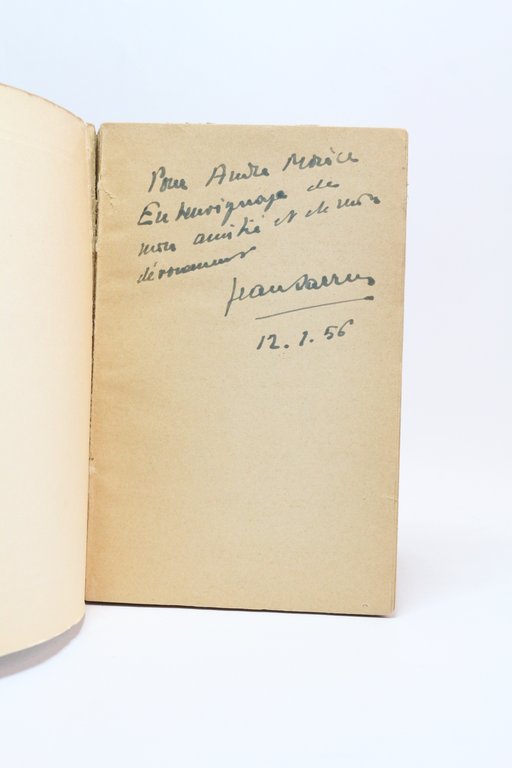 Pour André Morice
En témoignage de
mon amitié et de mon
dévouement
Jean Sarrus
12.1.56